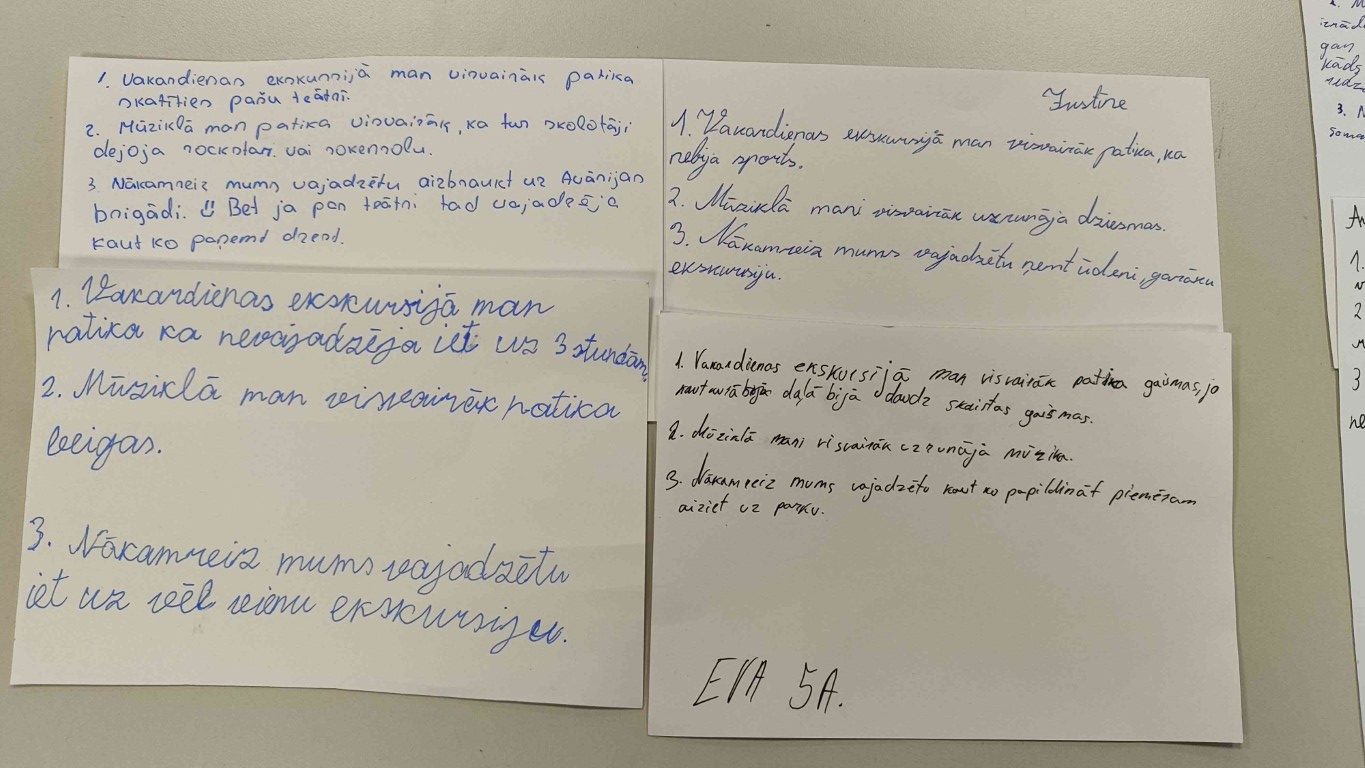 1. Vakardienas ekskursijā man visvairāk patika
skatīties pašu teātri.
2. Mūziklā man patika visvairāk, ka tur skolotāji
dejoja rockstar. vai rokenrolu.
3. Nākamreiz mums vajadzētu aizbraukt uz Avārijas
brigādi. Bet ja par teātri tad vajadzēja
kaut ko paņemt dzert.
Justīne
1. Vakardienas ekskursijā man visvairāk patika, ka
nebija sports.
2. Mūziklā mani visvairāk uzrunāja dziesmas.
3. Nākamreiz mums vajadzētu ņemt ūdeni, garāku
ekskursiju.
1. Vakardienas ekskursijā man
patika ka nevajadzēja iet uz 3 stundām.
2. Mūziklā man visvairāk patika
beigas.
3. Nākamreiz mums vajadzētu
iet uz vēl vienu ekskursiju.
1. Vakardienas ekskursijā man visvairāk patika gaismas, jo
daļā bijā daudz skaistas gaismas.
2. Mūziklā mani visvairāk uzrunājā mūzika.
3. Nākamreiz mums vajadzētu kaut ko papildināt piemēram
aiziet uz parku.
EVA 5A.